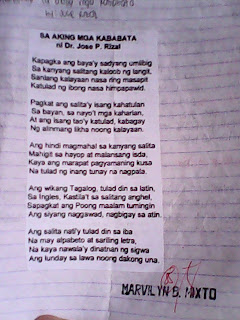 SA AKING MGA KABABATA
ni Dr. Jose P. Rizal
Kapagka ang baya'y sadyang umiibig
Sa kanyang salitang kaloob ng langit,
Sanlang kalayaan nasa ring masapit
Katulad ng ibong nasa himpapawid.
Pagkat ang salita'y isang kahatulan
Sa bayan, sa nayo't mga kaharian,
At ang isang tao'y katulad, kabagay
Ng alinmang likha noong kalayaan.
Ang hindi magmahal sa kanyang salita
Mahigit sa hayop at malansang isda,
Kaya ang marapat pagyamaning kusa
Na tulad ng inang tunay na nagpala.
Ang wikang Tagalog, tulad din sa latin,
Sa Ingles, Kastila't sa salitang anghel,
Sapagkat ang Poong maalam tumingin
Ang siyang naggawad, nagbigay sa atin.
Ang salita nati'y tulad din sa iba
Na may alpabeto at sariling letra,
Na kaya nawala'y dinatnan ng sigwa
Ang lunday sa lawa noong dakong una.
MARVILYN B. MIXTO